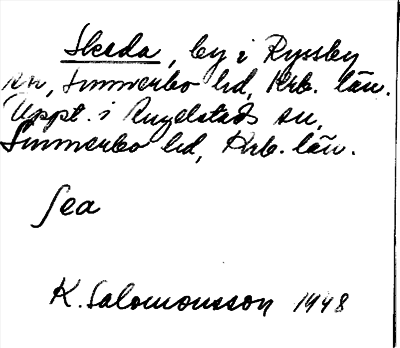 Skeda, by i Ryssby
sn, Sunnerbo hd, Krb. län.
Uppt. i Angelstads sn,
Sunnerbo hd, Krb. län.
Sea
K. Salomonsson 1948